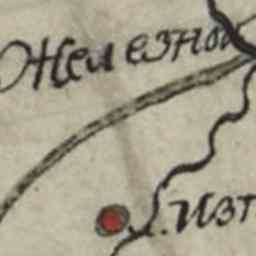 Железной
Изт